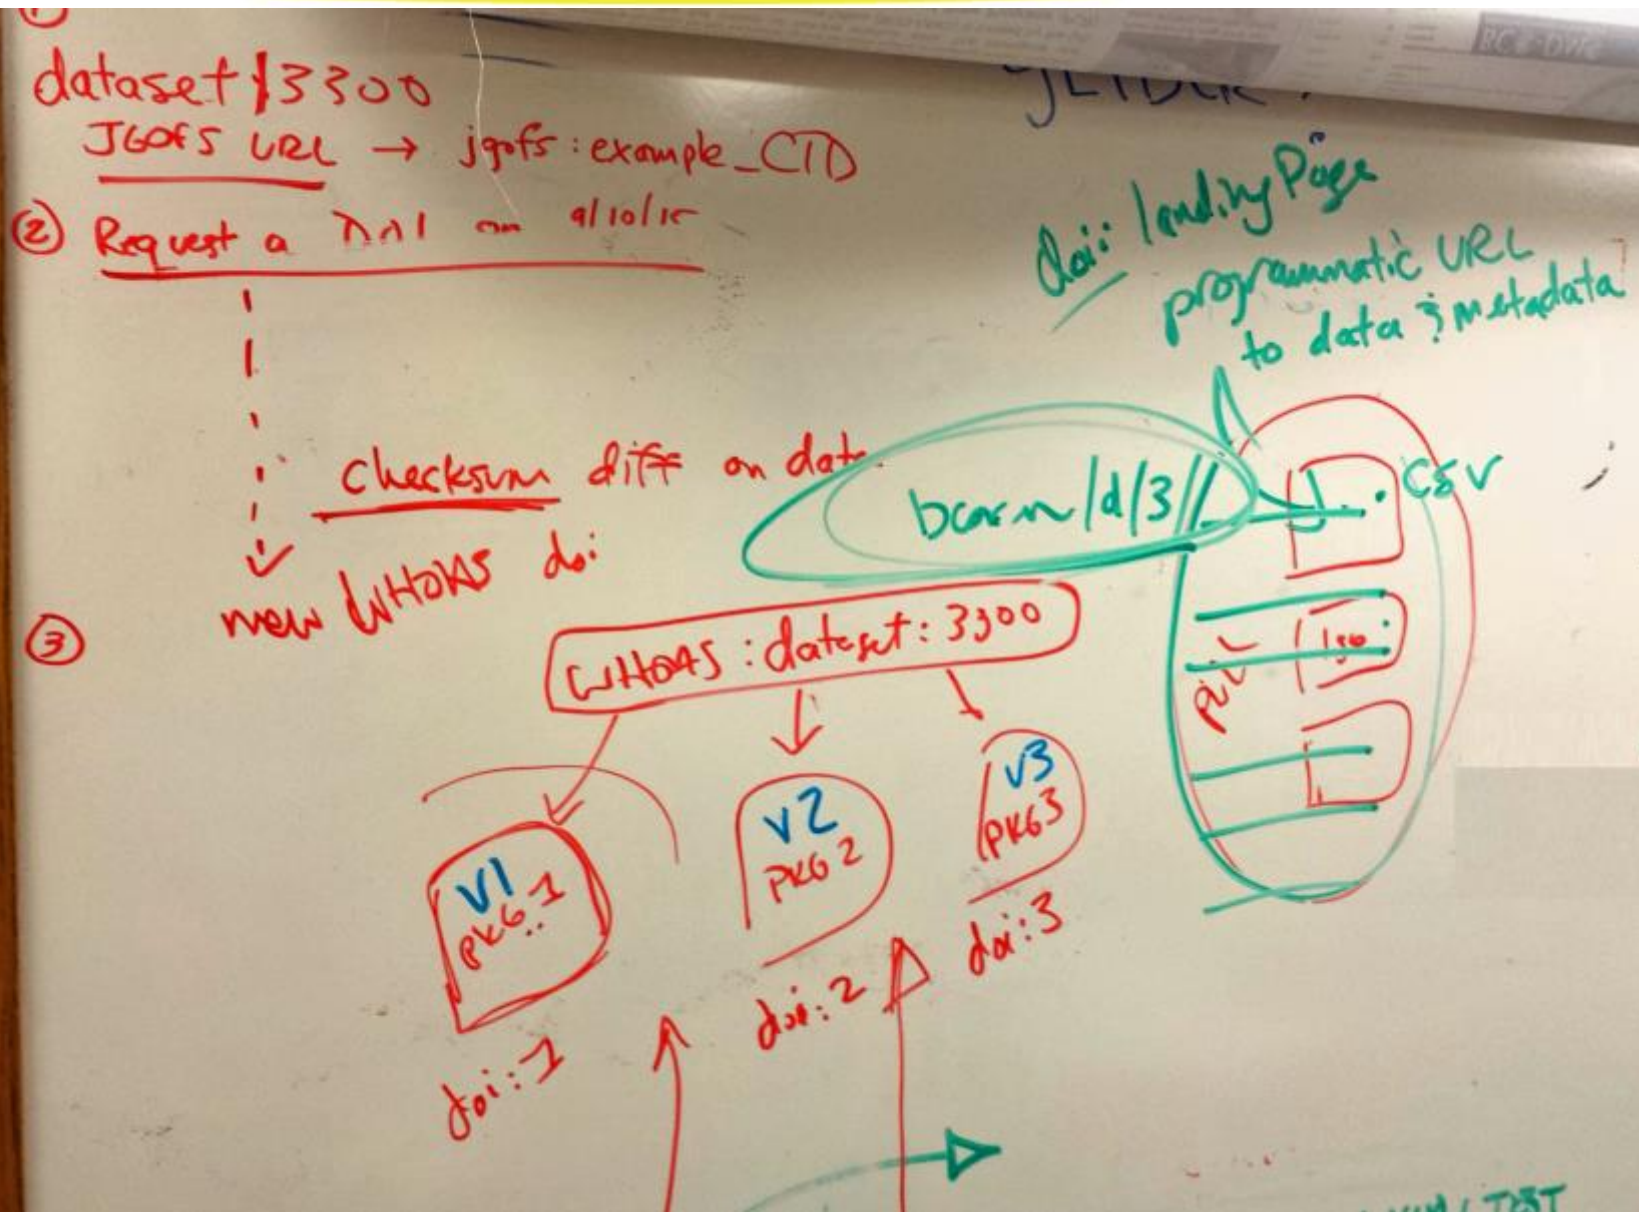 dataset/3300
JGOFS URL → jgofs:example_CTD
② Request a on 9/10/15
checksum diff on data
new WHOAS doi
③
WHOAS : dataset : 3300
V1
PKG 1
doi:1
V2
PKG 2
doi:2
V3
PKG3
doi:3
doi: landing Page
programmatic URL
to data & metadata
/d/3
CSV
Iso